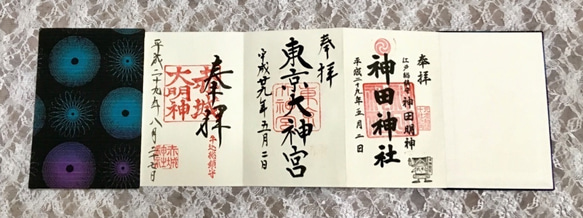 奉拝
江戸総鎮守 神田明神
神田神社
平成二十九年五月二日
奉拝
東京大神宮
平成廿九年五月二日
奉拝
赤城
大明神
牛込総鎮守
赤城
神社
平成二十九年八月二十七日